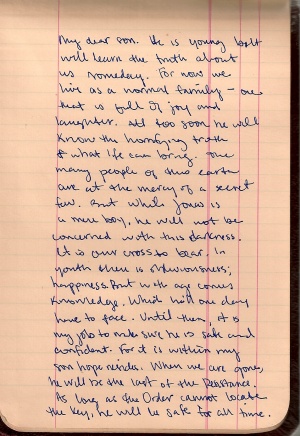 My dear son. He is young but
will learn the truth about
us someday. For now we
live as a normal family - one
that is full of joy and
laughter. All too soon he will
know the horrifying truth
of what life can bring. The
many people of this earth
are at the mercy of a secret
few. But while Jonas is
a mere boy, he will not be
concerned with this darkness.
It is our cross to bear. In
youth there is obliviousness;
happiness. But with age comes
knowledge. Which he'll one day
have to face. Until then, it is
my job to make sure he is safe and
confident. For it is within my
son hope resides. When we are gone,
he will be the last of the Resistance.
As long as the Order cannot locate
the key, he will be safe for all time.